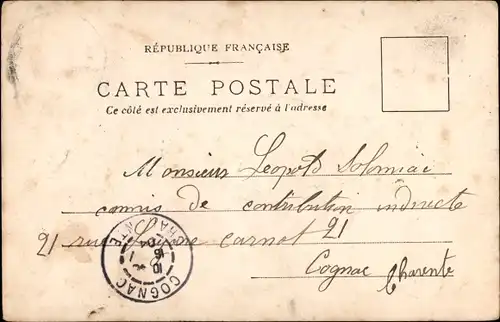 RÉPUBLIQUE FRANÇAISE
CARTE POSTALE
Ce côté est exclusivement réservé à l'adresse
Monsieur Leopold
commis de contribution indirecte
21 rue carnot 21
Cognac Charente
COGNAC
CHARENTE